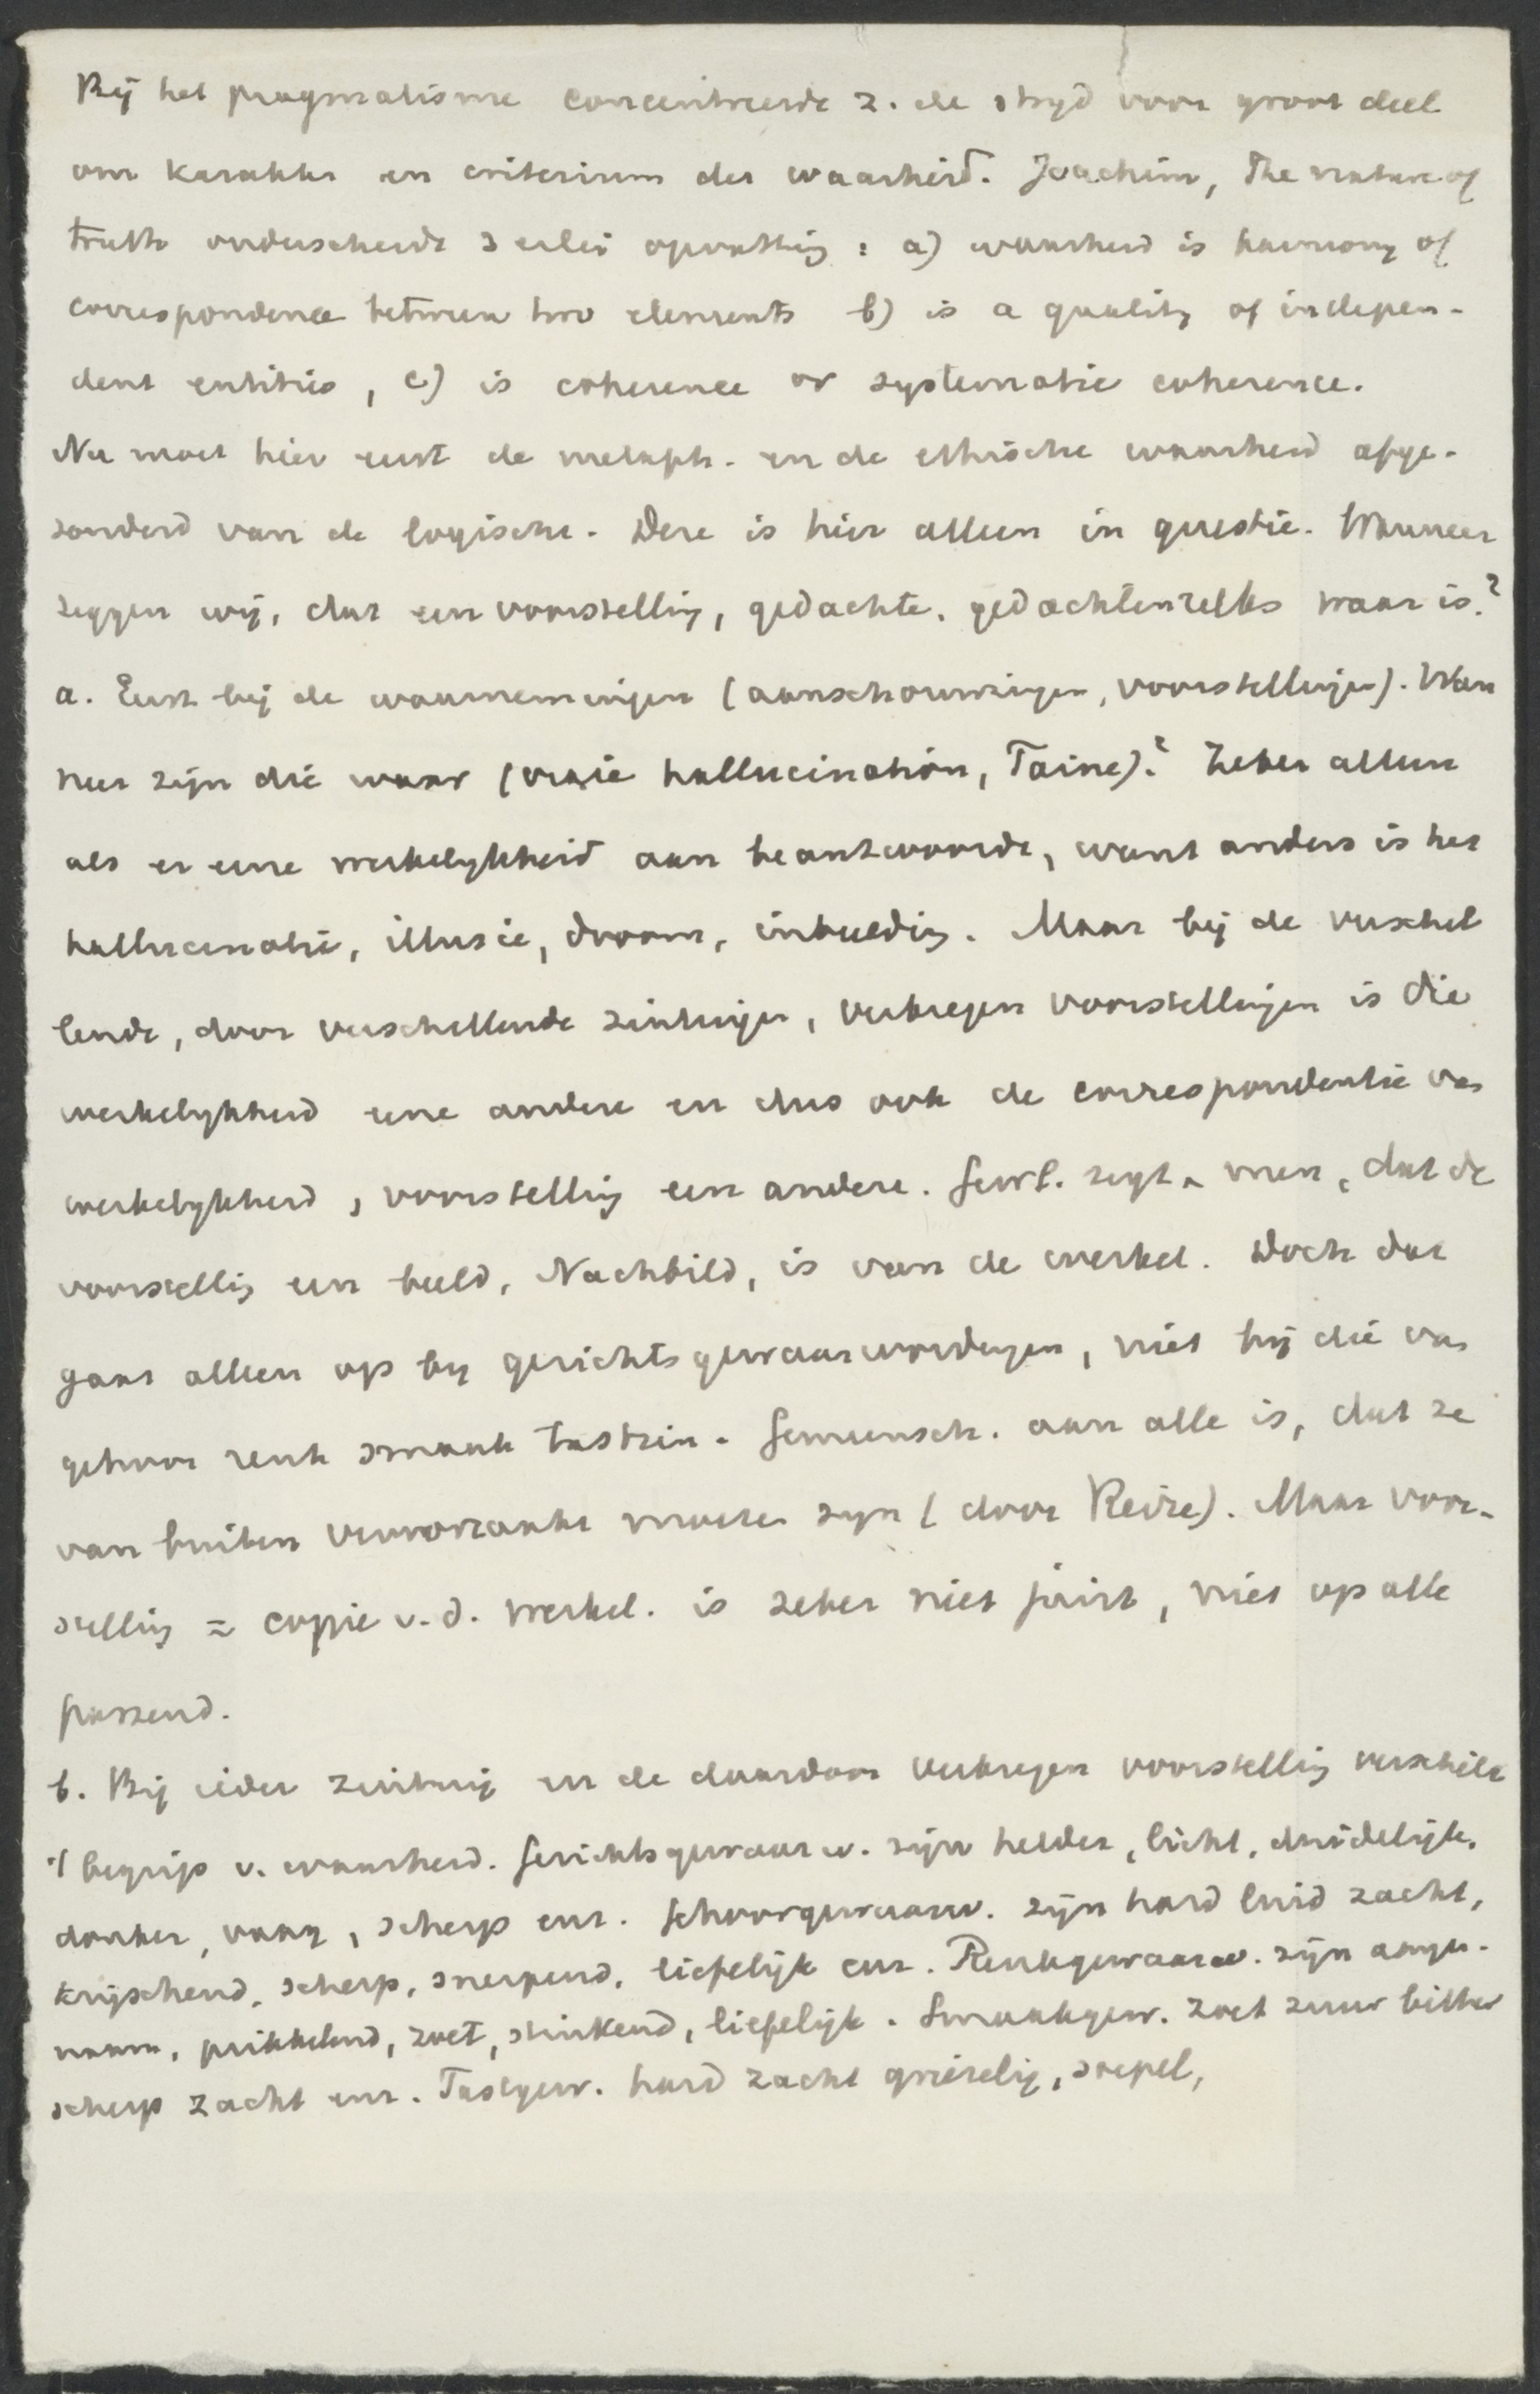 Bij het pragmatisme concentreerde z. de strijd voor groot deel
om karakter en criterium der waarheid. Joachim, The nature of
truth onderscheidt 3 erlei opvatting: a) waarheid is harmony of
correspondence between two elements b) is a quality of indepen-
dent entities, c) is coherence or systematic coherence.
Nu moet hier eerst de metaph. en de ethische waarheid afge-
zonderd van de logische. Deze is hier alleen in questie. Wanneer
zeggen wij, dat een voorstelling, gedachte, gedachtenreeks waar is?
a. Eerst bij de waarnemingen (aanschouwingen, voorstellingen). Wan
neer zijn die waar (vraie hallucination, Taine)? Zeker alleen
als er eene werkelijkheid aan beantwoordt, want anders is het
hallucinatie, illusie, droom, inbeelding. Maar bij de verschil
lende, door verschillende zintuigen, verkregen voorstellingen is die
werkelijkheid eene andere en dus ook de correspondentie van
werkelijkheid, voorstelling een andere. Gew. zegt men, dat de
voorstelling een beeld, Nachbild, is van de werkel. Doch dat
gaat alleen op bij gezichtsgewaarwordingen, niet bij die van
gehoor reuk smaak tastzin. Gemeensch. aan alle is, dat ze
van buiten veroorzaakt moeten zijn (door Reize). Maar voor-
stelling = copie v.d. werkel. is zeker niet juist, niet op alle
passend.
b. Bij ieder zintuig en de daardoor verkregen voorstelling verschilt
't begrip v. waarheid. Gezichtsgewaarw. zijn helder, licht, duidelijk,
donker, vaag, scherp enz. Gehoorgewaarw. zijn hard luid zacht,
krijschend, scherp, snerpend, liefelijk enz. Reukgewaarw. zijn aange-
naam, prikkelend, zoet, stinkend, liefelijk. Smaakgew. zoet zuur bitter
scherp zacht enz. Tastgew. hard zacht griezelig, soepel,